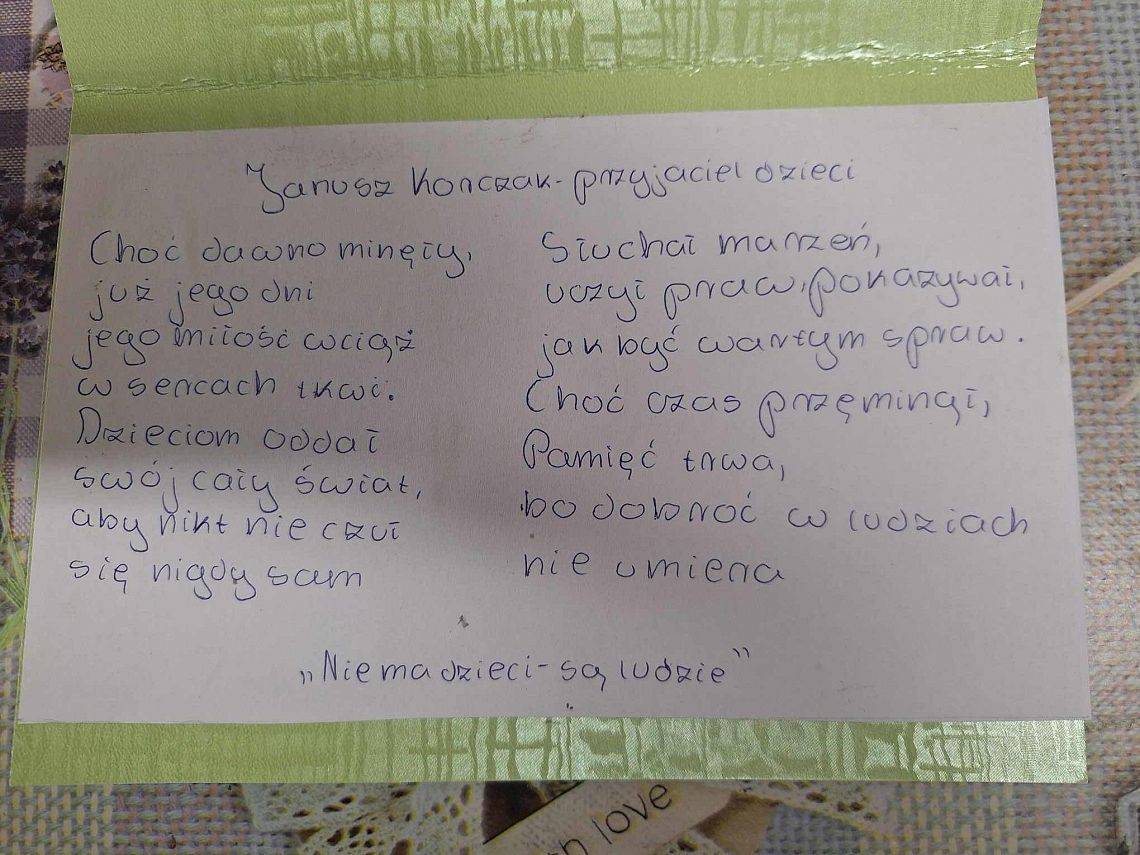 Janusz Korczak - przyjaciel dzieci
Choć dawno minęły,
już jego dni
jego miłość wciąż
w sercach tkwi.
Dzieciom oddał
swój cały świat,
aby nikt nie czuł
się nigdy sam
Słuchał marzeń,
uczył praw, pokazywał,
jak być wartym spraw.
Choć czas przęminął,
Pamięć trwa,
bo dobroć w ludziach
nie umiera
„Nie ma dzieci - są ludzie”
love